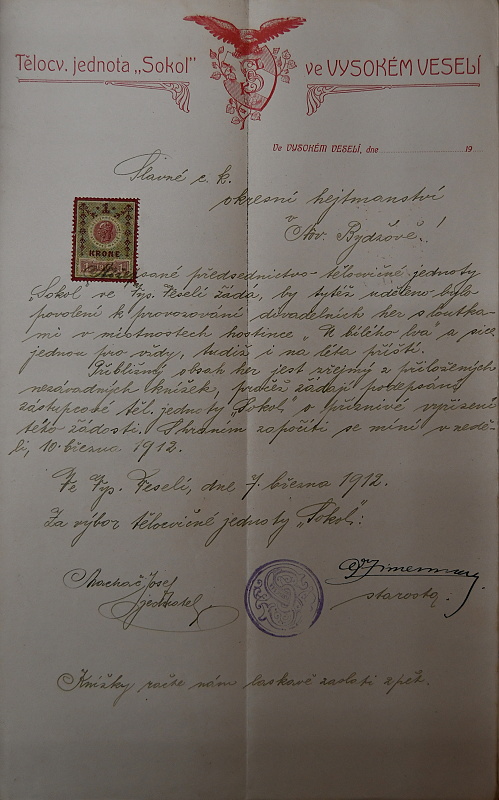 Tělocv. jednota „Sokol" ve VYSOKÉM VESELÍ
Ve VYSOKÉM VESELÍ, dne 19
Slavné c. k.
okresní hejtmanství
v
Nov. Bydžově!
1
KRONE
předsednictvo tělocvičné jednoty
„Sokol" ve Vys. Veselí žádá, by týmž uděleno bylo
povolení k provozování divadelních her s loutka-
mi v místnostech hostince „U bílého lva" a sice
jednou pro vždy, tudíž i na léta příští.
Přibližný obsah her jest zřejmý z přiložených
nezávadných knížek, pročež žádají podepsaní
zástupcové těl. jednoty „Sokol" o příznivé vyřízení
této žádosti. S hraním započíti se míní v nedě-
li, 10. března 1912.
Ve Vys. Veselí, dne 7. března 1912.
Za výbor tělocvičné jednoty „Sokol":
Machač Josef
jednatel
Zimmermann
starosta.
Knížky račte nám laskavě zaslati zpět.